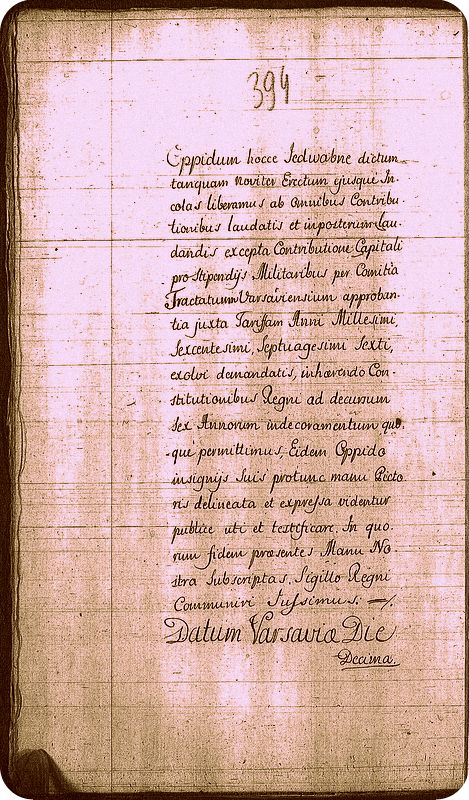 394
Oppidum hocce Jedwabne dictum
tanquam noviter Erectum ejusque In-
colas liberamus ab omnibus Contribu
tionibus laudatis et inposterum Lau-
dandis excepta Contributione Capitali
pro stipendijs Militaribus per Comitia
Tractatum Varsaviensium approban-
tia juxta Tariffam Anni Millesimi,
Sexcentesimi, Septuagesimi Sexti,
exolvi demandatis, inhærendo Con-
stitutionibus Regni ad decursum
sex Annorum indecoramentum quo-
-qui permittimus, Eidem Oppido
insignijs suis protunc manu Picto
ris delineata et expressa videntur
publice uti et testificare. In quo-
rum fidem præsentes Manu No-
stra Subscriptas, Sigillo Regni
Communiri Jussimus.
Datum Varsaviæ Die
Decima.